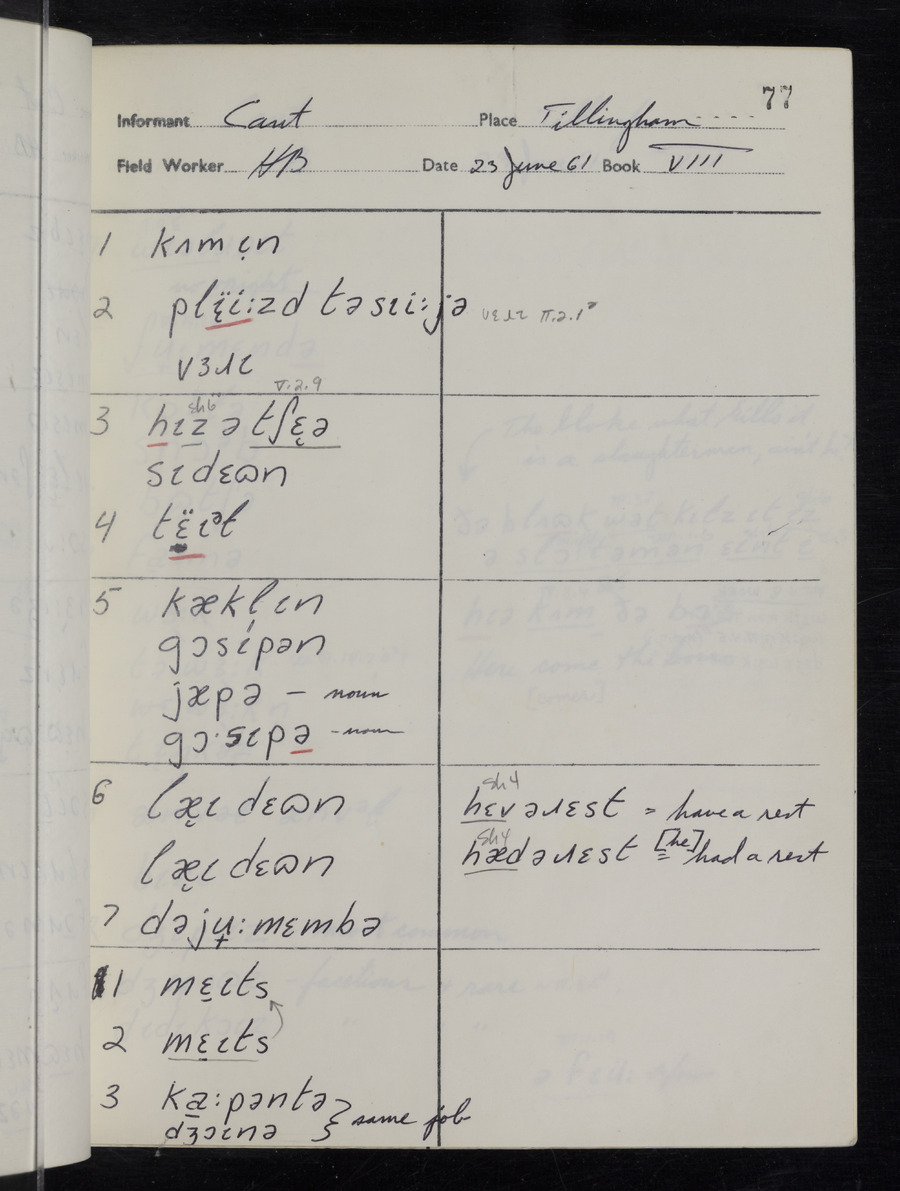 77
Informant Cant Place Tillingham
Field Worker HB Date 23 June 61 Book VIII
1 kʌmɪn
2 plɛ̈i:zd təsɪi:jə
vɜɹɪ
V.2.9
3 hɪz ə tʃɛ̣ə
sɪdɛɷn
4 tɛ̈ɪəɫ
5 kækl̩ɪn
gɔsɪpən
jæpə – noun
gɔ·sɪpə – noun
6 læ̣ɪ dɛɷn
sh4
hɛvəɹɛst = have a rest
læ̣ɪ dɛɷn
sh4
hædəɹɛst [he] = had a rest
7 dəjʉ:mɛmbə
1 mɛ̣ɪts
2 mɛ̣ɪts
3 ka:pəntə
dʒɔɪnə } same job